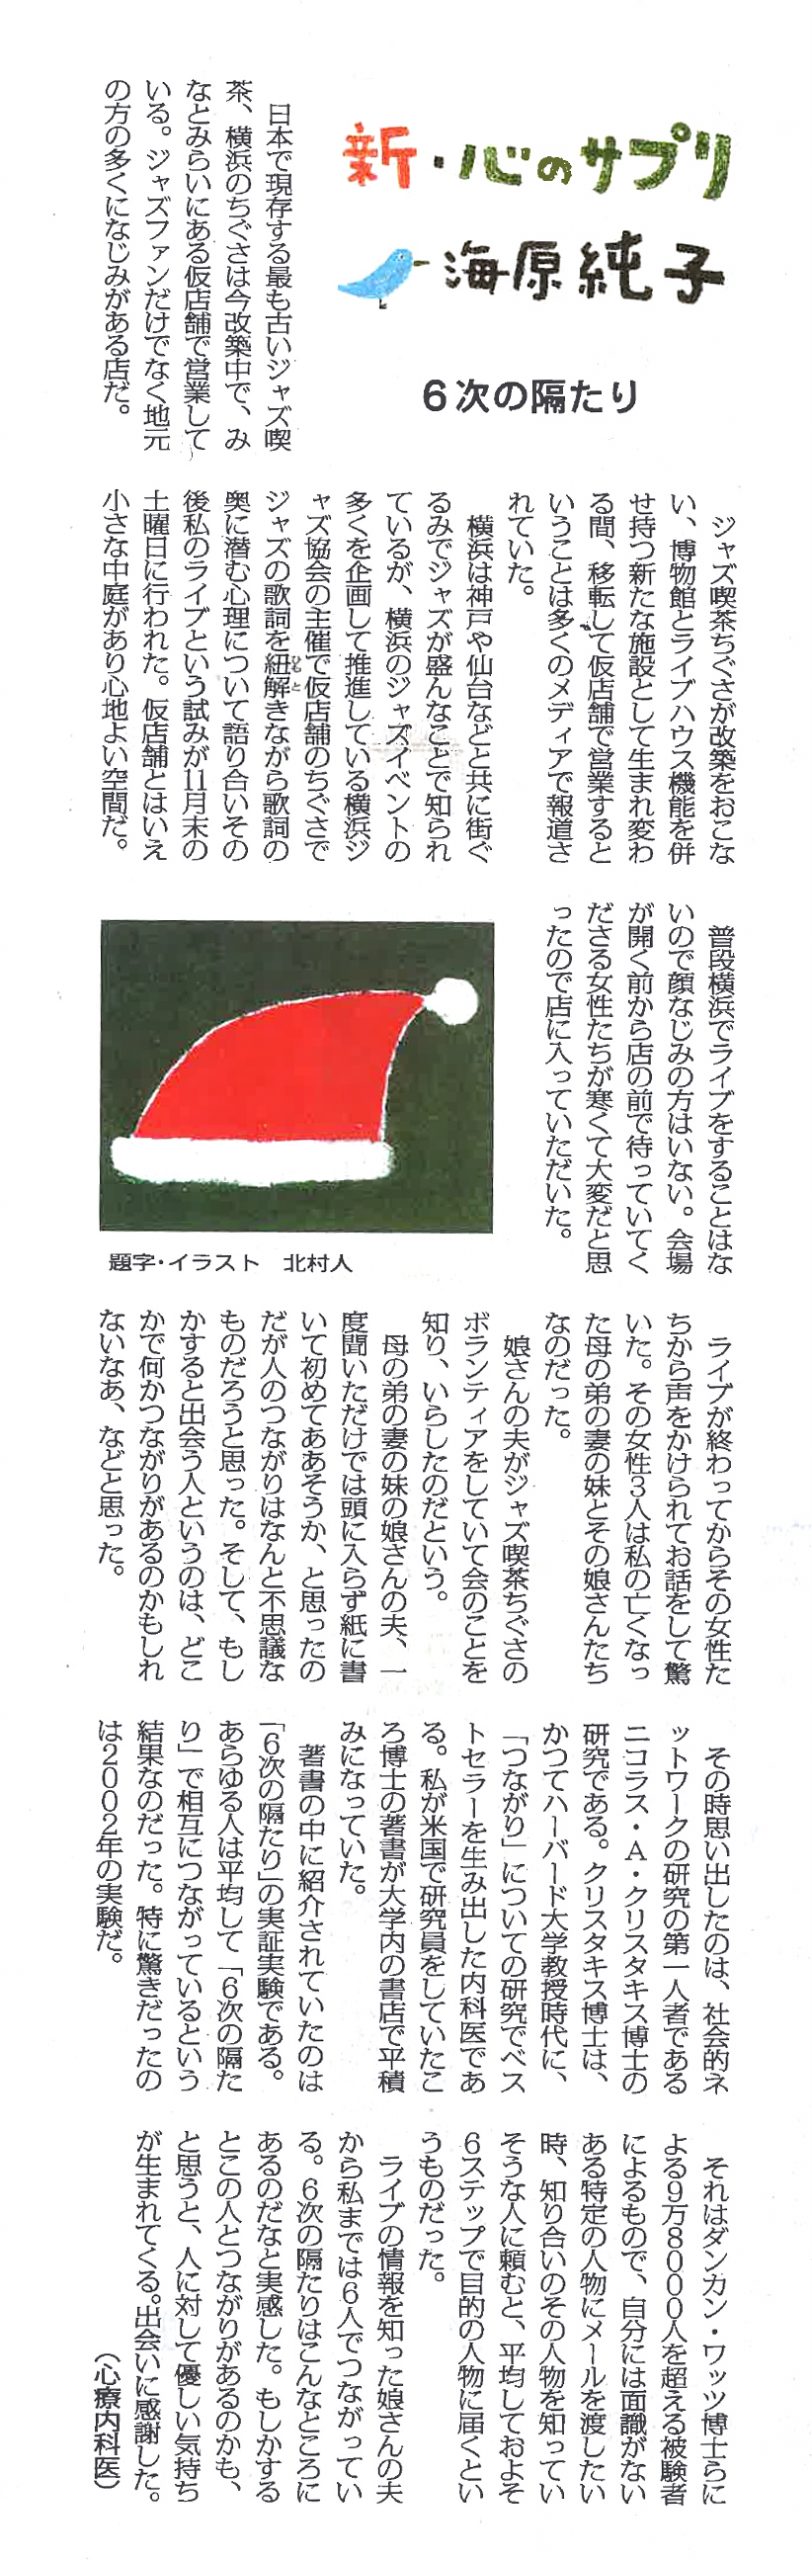 新・心のサプリ
海原純子
6次の隔たり
日本で現存する最も古いジャズ喫
茶、横浜のちぐさは今改築中で、み
なとみらいにある仮店舗で営業して
いる。ジャズファンだけでなく地元
の方の多くになじみがある店だ。
ジャズ喫茶ちぐさが改築をおこな
い、博物館とライブハウス機能を併
せ持つ新たな施設として生まれ変わ
る間、移転して仮店舗で営業すると
いうことは多くのメディアで報道さ
れていた。
横浜は神戸や仙台などと共に街ぐ
るみでジャズが盛んなことで知られ
ているが、横浜のジャズイベントの
多くを企画して推進している横浜ジ
ャズ協会の主催で仮店舗のちぐさで
ジャズの歌詞を紐解きながら歌詞の
ひもと
奥に潜む心理について語り合いその
後私のライブという試みが11月末の
土曜日に行われた。仮店舗とはいえ
小さな中庭があり心地よい空間だ。
普段横浜でライブをすることはな
いので顔なじみの方はいない。会場
が開く前から店の前で待っていてく
ださる女性たちが寒くて大変だと思
ったので店に入っていただいた。
題字・イラスト 北村人
ライブが終わってからその女性た
ちから声をかけられてお話をして驚
いた。その女性3人は私の亡くなっ
た母の弟の妻の妹とその娘さんたち
なのだった。
娘さんの夫がジャズ喫茶ちぐさの
ボランティアをしていて会のことを
知り、いらしたのだという。
母の弟の妻の妹の娘さんの夫、一
度聞いただけでは頭に入らず紙に書
いて初めてああそうか、と思ったの
だが人のつながりはなんと不思議な
ものだろうと思った。そして、もし
かすると出会う人というのは、どこ
かで何かつながりがあるのかもしれ
ないなあ、などと思った。
その時思い出したのは、社会的ネ
ットワークの研究の第一人者である
ニコラス・A・クリスタキス博士の
研究である。クリスタキス博士は、
かつてハーバード大学教授時代に、
「つながり」についての研究でベス
トセラーを生み出した内科医であ
る。私が米国で研究員をしていたこ
ろ博士の著書が大学内の書店で平積
みになっていた。
著書の中に紹介されていたのは
「6次の隔たり」の実証実験である。
あらゆる人は平均して「6次の隔た
り」で相互につながっているという
結果なのだった。特に驚きだったの
は2002年の実験だ。
それはダンカン・ワッツ博士らに
よる9万8000人を超える被験者
によるもので、自分には面識がない
ある特定の人物にメールを渡したい
時、知り合いのその人物を知ってい
そうな人に頼むと、平均しておよそ
6ステップで目的の人物に届くとい
うものだった。
ライブの情報を知った娘さんの夫
から私までは6人でつながってい
る。6次の隔たりはこんなところに
あるのだなと実感した。もしかする
とこの人とつながりがあるのかも、
と思うと、人に対して優しい気持ち
が生まれてくる。出会いに感謝した。
（心療内科医）